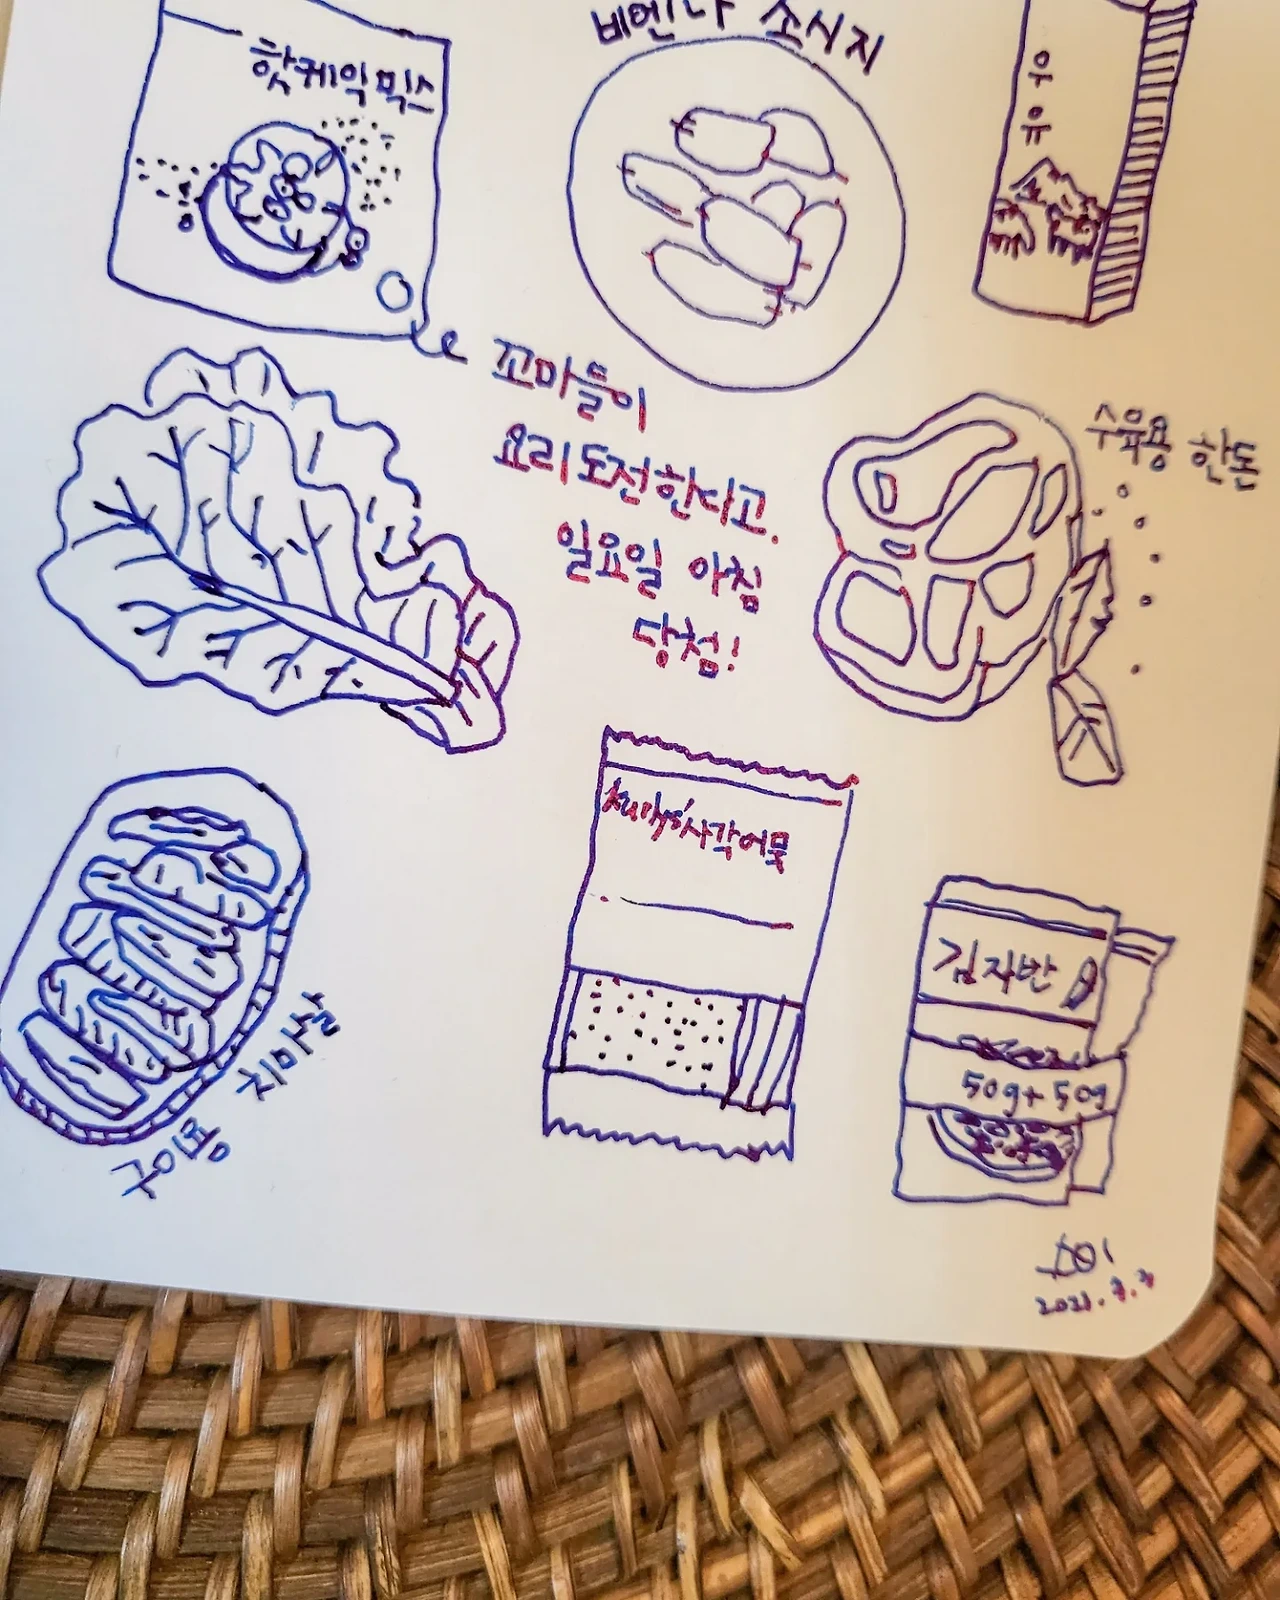 비엔나 소시지
핫케익믹스
우유
꼬마들이
요리도전한다고.
일요일 아침
당첨!
수육용 한돈
사각어묵
김자반
50g+50g
구이용 치마살